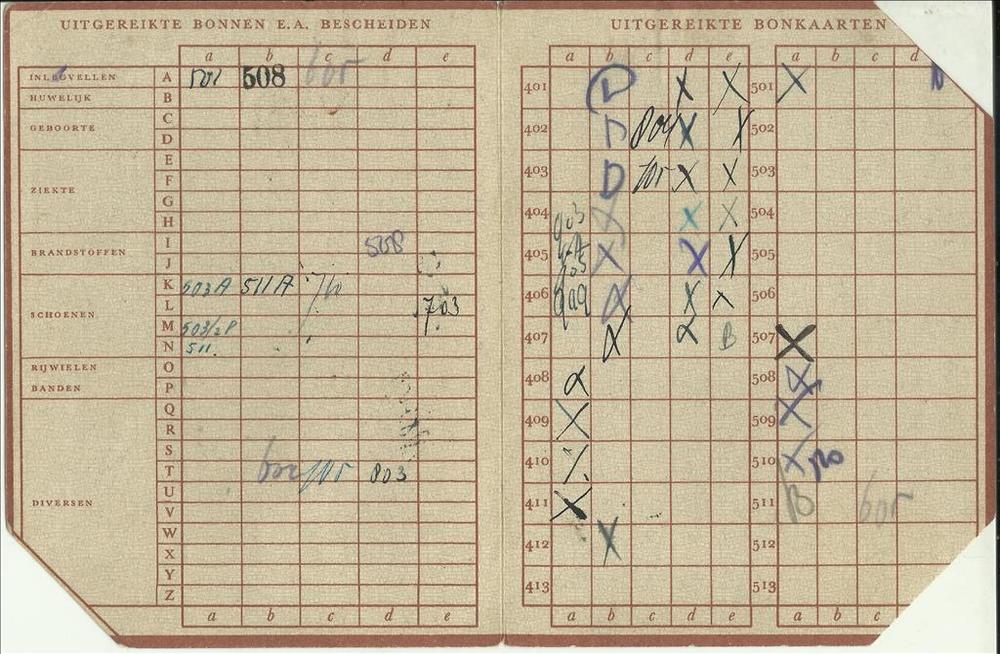 UITGEREIKTE BONNEN E.A. BESCHEIDEN
a b c d e
INLEGVELLEN A 501 508 605
HUWELIJK B
C
GEBOORTE D
E
ZIEKTE F
G
H
I 508
BRANDSTOFFEN J
K 503A 511A
SCHOENEN L 703
M 503/2P
N 511.
RIJWIELEN O
BANDEN P
Q
R
S
T 602 705 803
DIVERSEN U
V
W
X
Y
Z
a b c d e
UITGEREIKTE BONKAARTEN
a b c d e a b c d
401 D X X 501 X
402 D 804 X X 502
403 D 705 X X 503
404 903 X X X 504
405 905 X X X 505
406 909 X X X 506
407 X X B 507 X
408 X 508 X
409 X 509 X
410 X 510 X
411 X 511 B 605
412 X 512
413 513
a b c d e a b c